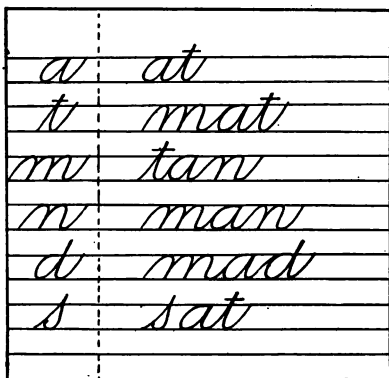 a at
t mat
m tan
n man
d mad
s sat